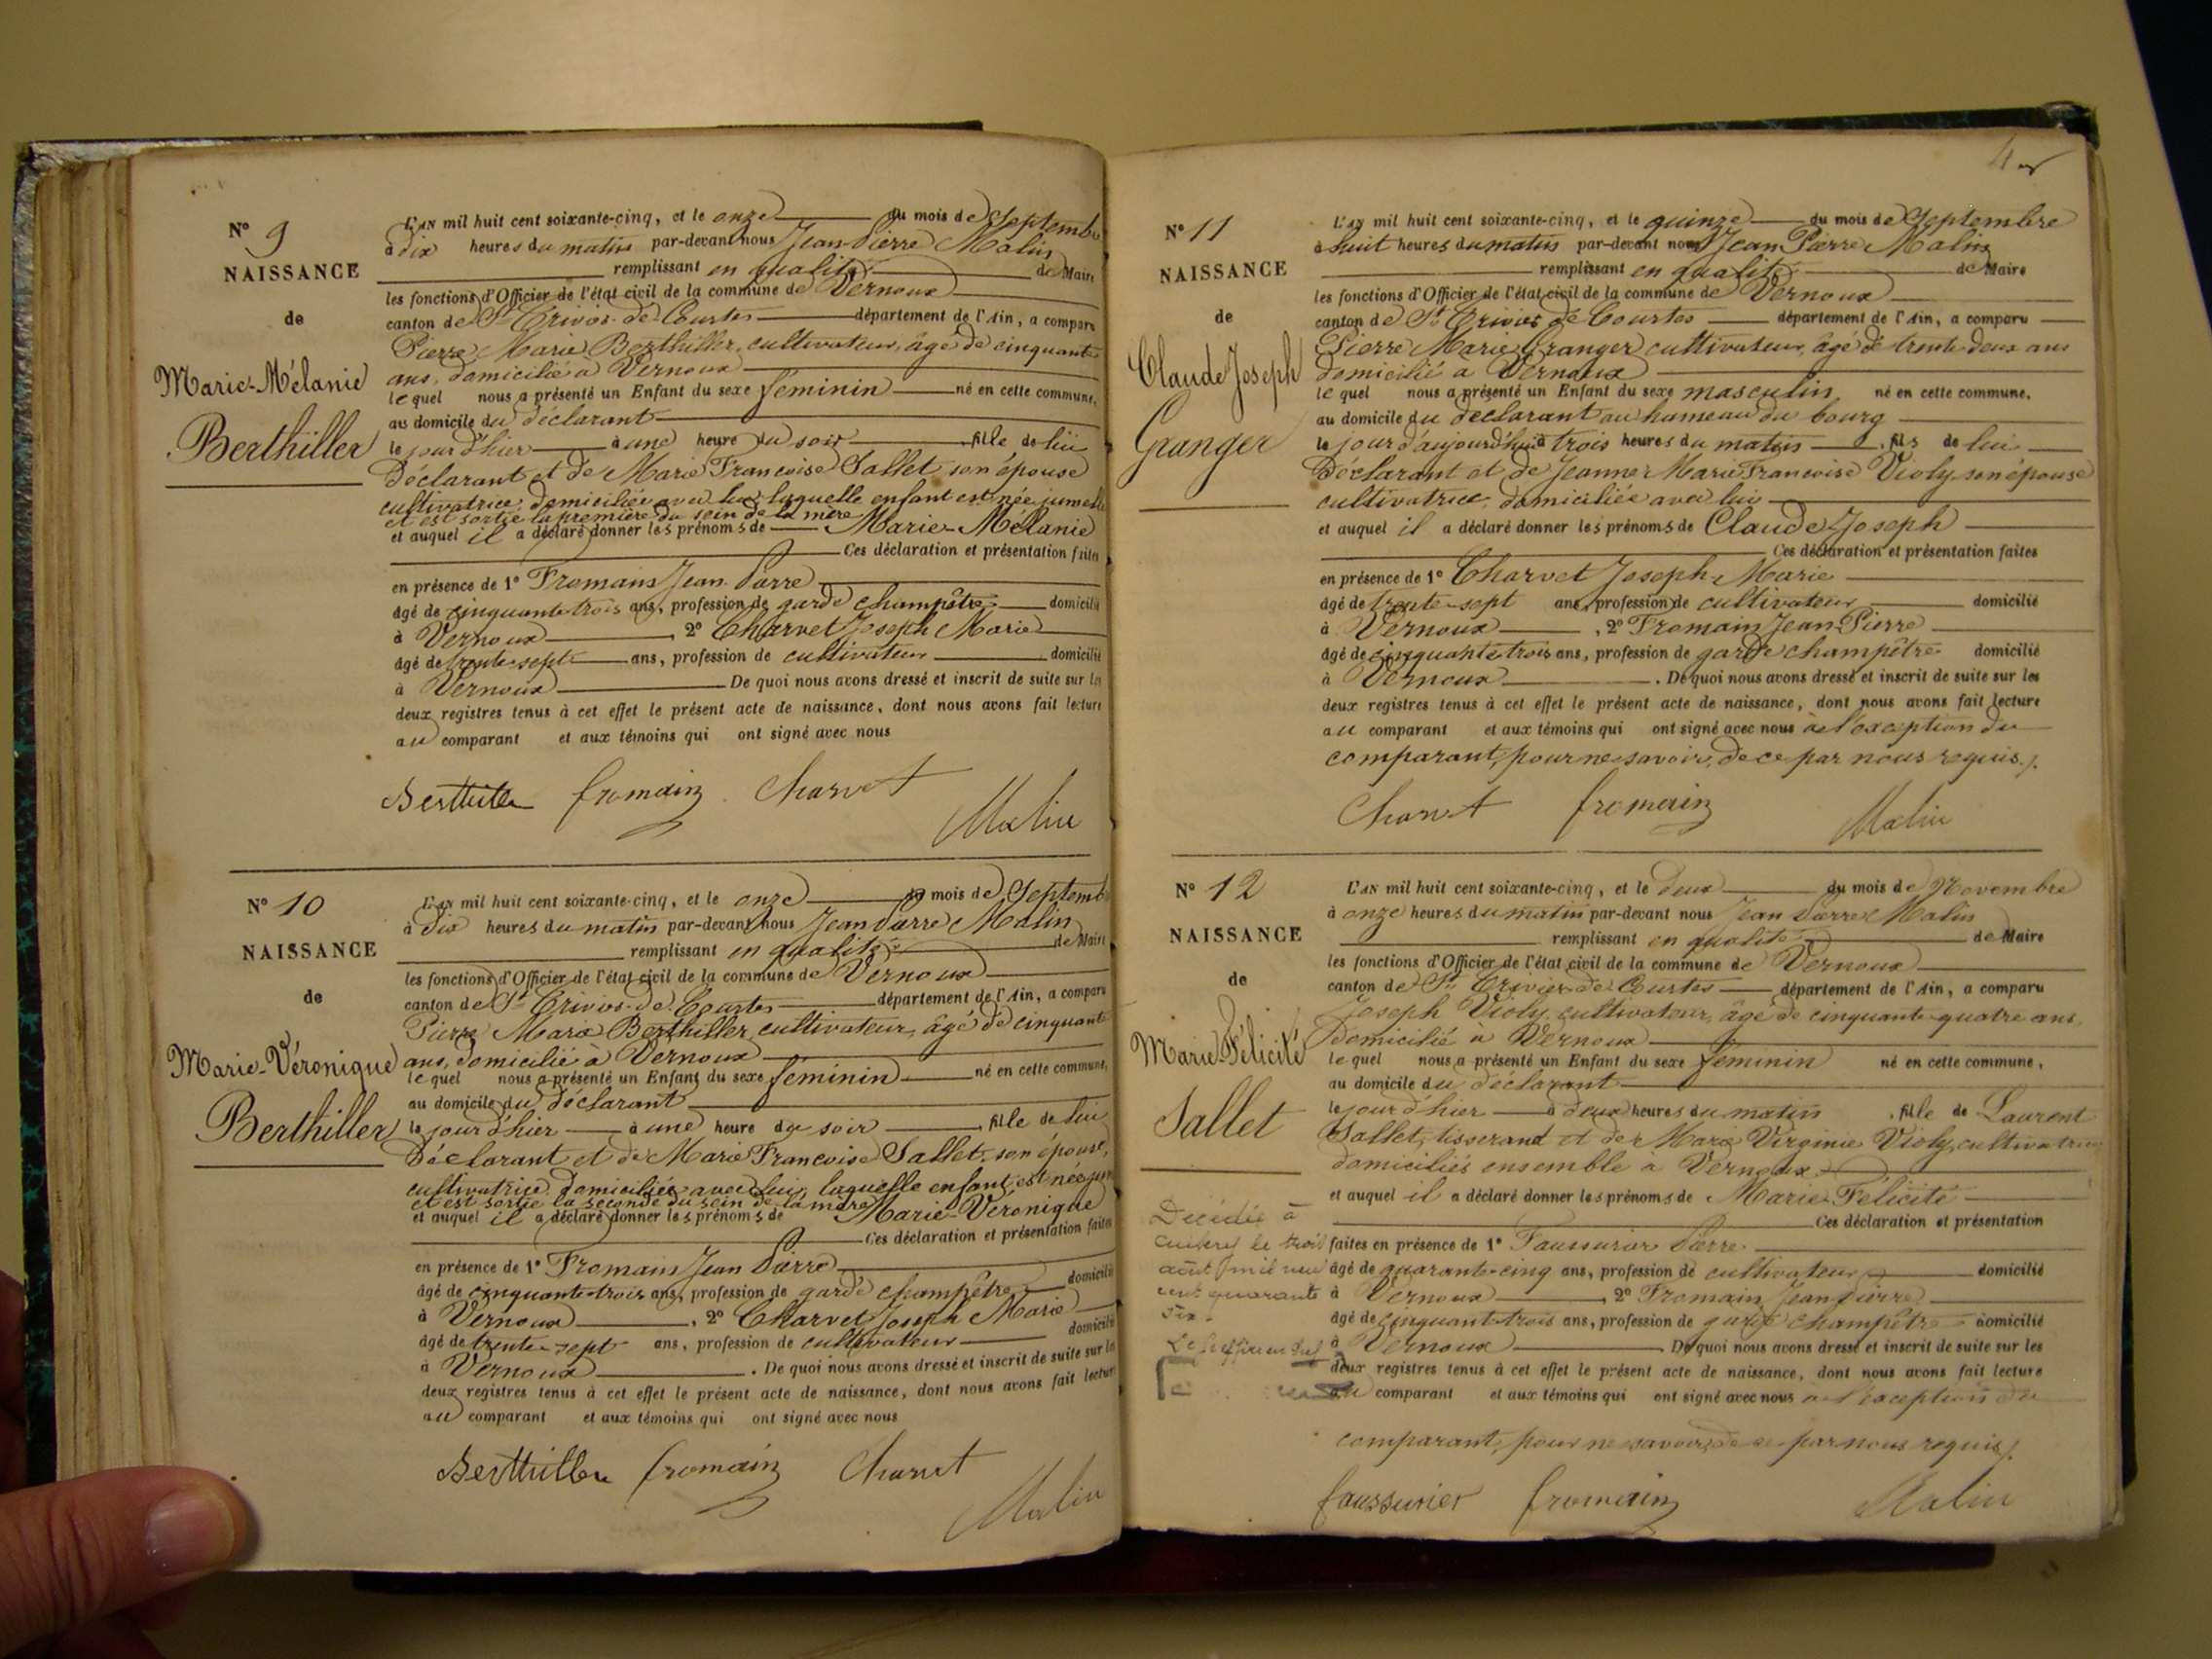 N° 9
NAISSANCE
de
Marie-Mélanie
Berthiller
L'AN mil huit cent soixante-cinq, et le onze du mois de Septembre
à dix heures du matin par-devant nous Jean-Pierre Malin
remplissant en qualité de Maire
les fonctions d'Officier de l'état civil de la commune de Vernoux
canton de St Trivier-de-Courtes département de l'Ain, a comparu
Pierre Marie Berthiller, cultivateur, âgé de cinquante
ans, domicilié à Vernoux
lequel nous a présenté un Enfant du sexe féminin né en cette commune,
au domicile du déclarant
le jour d'hier à une heure du soir fille de lui
Déclarant et de Marie Françoise Sallet son épouse
cultivatrice, domiciliée avec lui, laquelle enfant est née jumelle
et est sortie la première du sein de la mère
et auquel il a déclaré donner les prénoms de Marie-Mélanie
Ces déclaration et présentation faites
en présence de 1° Fromain Jean-Pierre
âgé de cinquante-trois ans, profession de garde champêtre domicilié
à Vernoux, 2° Charvet Joseph Marie
âgé de trente-sept ans, profession de cultivateur domicilié
à Vernoux De quoi nous avons dressé et inscrit de suite sur les
deux registres tenus à cet effet le présent acte de naissance, dont nous avons fait lecture
au comparant et aux témoins qui ont signé avec nous
Berthiller fromain Charvet
Malin
N° 10
NAISSANCE
de
Marie-Véronique
Berthiller
L'AN mil huit cent soixante-cinq, et le onze du mois de Septembre
à dix heures du matin par-devant nous Jean Pierre Malin
remplissant en qualité de Maire
les fonctions d'Officier de l'état civil de la commune de Vernoux
canton de St Trivier-de-Courtes département de l'Ain, a comparu
Pierre Marie Berthiller, cultivateur, âgé de cinquante
ans, domicilié à Vernoux
lequel nous a présenté un Enfant du sexe féminin né en cette commune,
au domicile du déclarant
le jour d'hier à une heure du soir, fille de lui
Déclarant et de Marie Françoise Sallet, son épouse,
cultivatrice domiciliée avec lui, laquelle enfant est née
et est sortie la seconde du sein de la mère
et auquel il a déclaré donner les prénoms de Marie-Véronique
Ces déclaration et présentation faites
en présence de 1° Fromain Jean Pierre
âgé de cinquante-trois ans, profession de garde champêtre domicilié
à Vernoux, 2° Charvet Joseph Marie
âgé de trente-sept ans, profession de cultivateur domicilié
à Vernoux. De quoi nous avons dressé et inscrit de suite sur les
deux registres tenus à cet effet le présent acte de naissance, dont nous avons fait lecture
au comparant et aux témoins qui ont signé avec nous
Berthiller fromain Charvet
Malin
N° 11
NAISSANCE
de
Claude Joseph
Granger
L'AN mil huit cent soixante-cinq, et le quinze du mois de Septembre
à huit heures du matin par-devant nous Jean Pierre Malin
remplissant en qualité de Maire
les fonctions d'Officier de l'état civil de la commune de Vernoux
canton de St Trivier de Courtes département de l'Ain, a comparu
Pierre Marie Granger cultivateur, âgé de trente deux ans
domicilié à Vernoux
lequel nous a présenté un Enfant du sexe masculin né en cette commune,
au domicile du déclarant au hameau du bourg
le jour d'aujourd'hui à trois heures du matin, fils de lui
Déclarant et de Jeanne-Marie Françoise Violy son épouse
cultivatrice, domiciliée avec lui
et auquel il a déclaré donner les prénoms de Claude Joseph
Ces déclaration et présentation faites
en présence de 1° Charvet Joseph-Marie
âgé de trente-sept ans, profession de cultivateur domicilié
à Vernoux, 2° Fromain Jean-Pierre
âgé de cinquante-trois ans, profession de garde champêtre domicilié
à Vernoux. De quoi nous avons dressé et inscrit de suite sur les
deux registres tenus à cet effet le présent acte de naissance, dont nous avons fait lecture
au comparant et aux témoins qui ont signé avec nous à l'exception du
comparant, pour ne savoir, de ce par nous requis.
Charvet fromain Malin
N° 12
NAISSANCE
de
Marie-Félicité
Sallet
L'AN mil huit cent soixante-cinq, et le deux du mois de Novembre
à onze heures du matin par-devant nous Jean Pierre Malin
remplissant en qualité de Maire
les fonctions d'Officier de l'état civil de la commune de Vernoux
canton de St Trivier-de-Courtes département de l'Ain, a comparu
Joseph Violy, cultivateur, âgé de cinquante-quatre ans,
Domicilié à Vernoux
lequel nous a présenté un Enfant du sexe féminin né en cette commune,
au domicile du déclarant
le jour d'hier à deux heures du matin, fille de Laurent
Sallet, tisserand et de Marie Virginie Violy, cultivatrice
domiciliés ensemble à Vernoux
et auquel il a déclaré donner les prénoms de Marie-Félicité
Ces déclaration et présentation
faites en présence de 1° Faussurier Pierre
âgé de quarante-cinq ans, profession de cultivateur domicilié
à Vernoux, 2° Fromain Jean Pierre
âgé de cinquante-trois ans, profession de garde champêtre domicilié
à Vernoux. De quoi nous avons dressé et inscrit de suite sur les
deux registres tenus à cet effet le présent acte de naissance, dont nous avons fait lecture
au comparant et aux témoins qui ont signé avec nous à l'exception du
comparant, pour ne savoir, de ce par nous requis.
faussurier fromain Malin
Décédée à
le trois
août mil neuf
cent quarante
six.